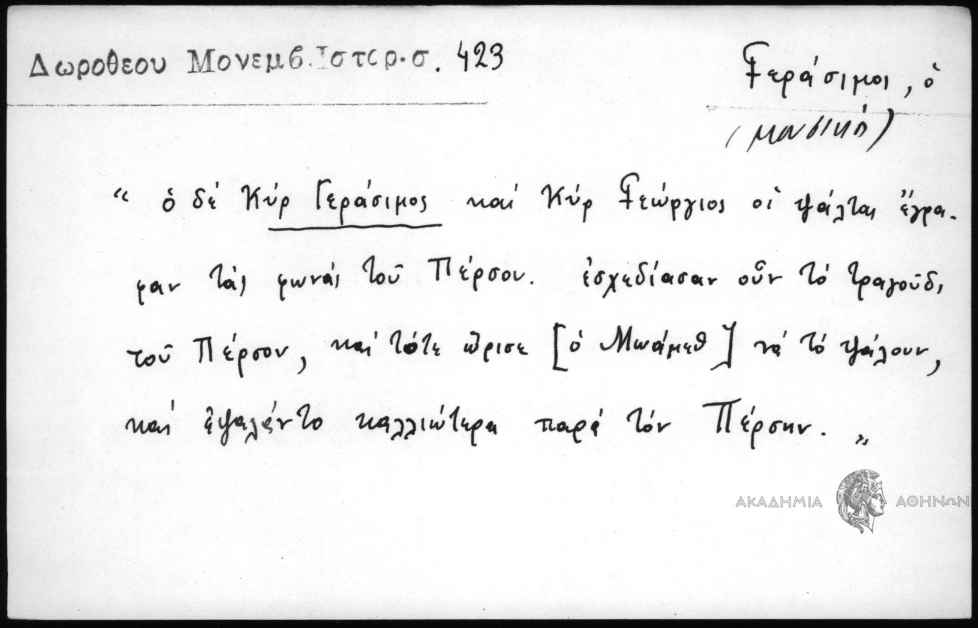 Δωροθεου Μονεμβ.Ιστορ.σ. 423
Γεράσιμος, ὁ
(μουσικὴ)
“ ὁ δέ Κύρ Γεράσιμος καί Κύρ Γεώργιος οἱ ψάλται ἔγρα-
ψαν τάς φωνάς τοῦ Πέρσου. ἐσχεδίασαν οὖν τό τραγούδι
τοῦ Πέρσου, καί τότε ὥρισε [ὁ Μωάμεθ] νά τό ψάλουν,
καί ἐψαλάν το καλλιώτερα παρά τόν Πέρσην. „
ΑΚΑΔΗΜΙΑ ΑΘΗΝΩΝ